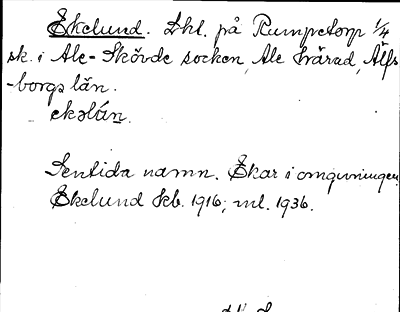 Ekelund. Lht. på Rumpetorp 1/4
sk. i Ale-Skövde socken, Ale härad, Älfs
-borgs län.
ekəlún.
Sentida namn. Ekar i omgivningen.
Ekelund Skb. 1916; ml. 1936.